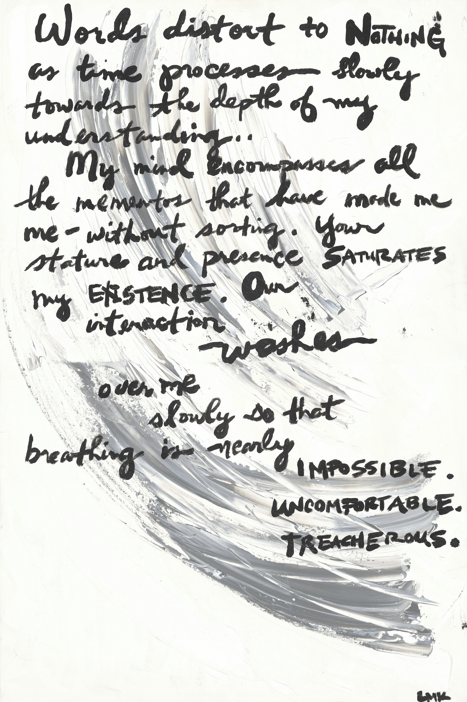 Words distort to NOTHING
as time processes slowly
towards the depth of my
understanding..
My mind encompasses all
the mementos that have made me
me - without sorting. Your
stature and presence SATURATES
my EXISTENCE. Our
interaction
washes
over me
slowly so that
breathing is nearly
IMPOSSIBLE.
UNCOMFORTABLE.
TREACHEROUS.